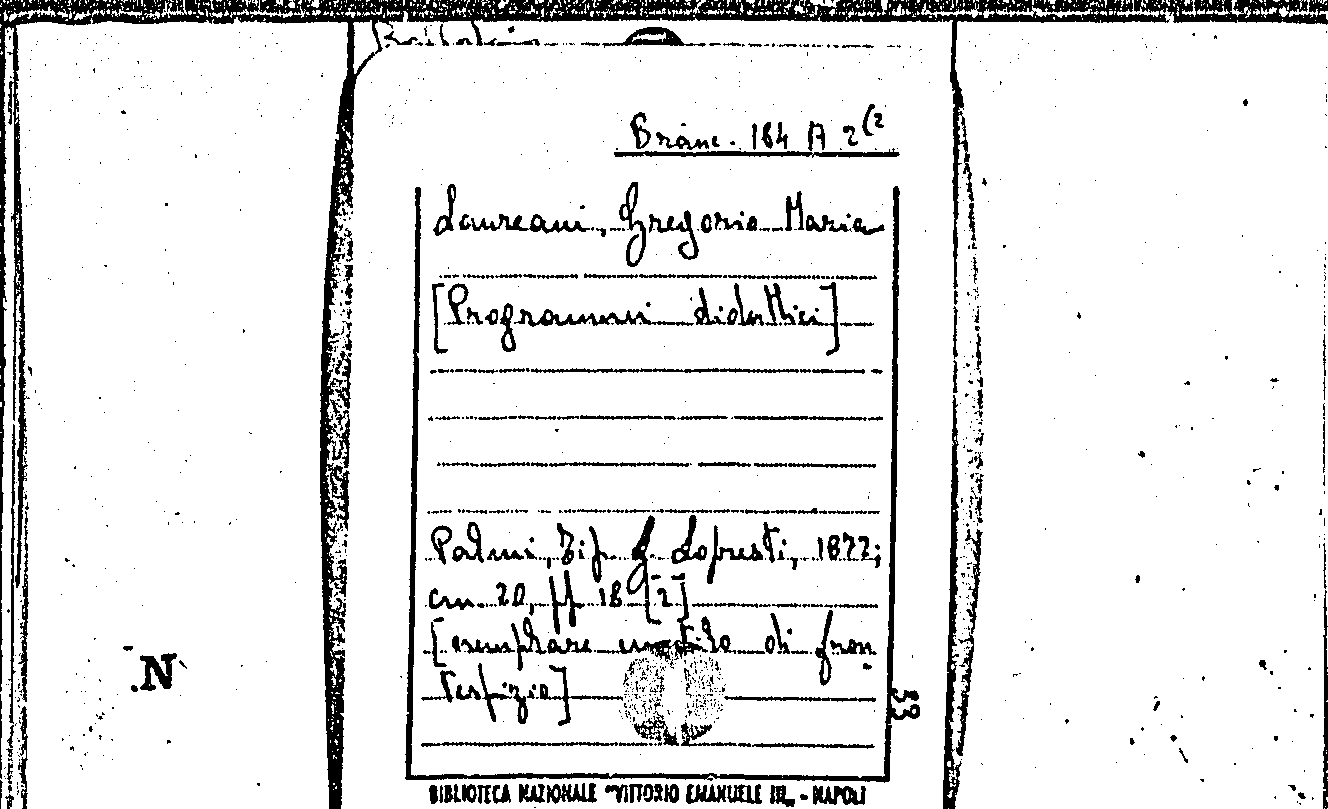 Branc. 184 A 2(2
Laureani, Gregorio Maria
[Programmi didattici]
Palmi, Tip. G. Lopresti, 1877;
cm 20, pp 18 [2]
[esemplare mutilo di fron
tespizio]
33
.N
BIBLIOTECA NAZIONALE "VITTORIO EMANUELE III" - NAPOLI